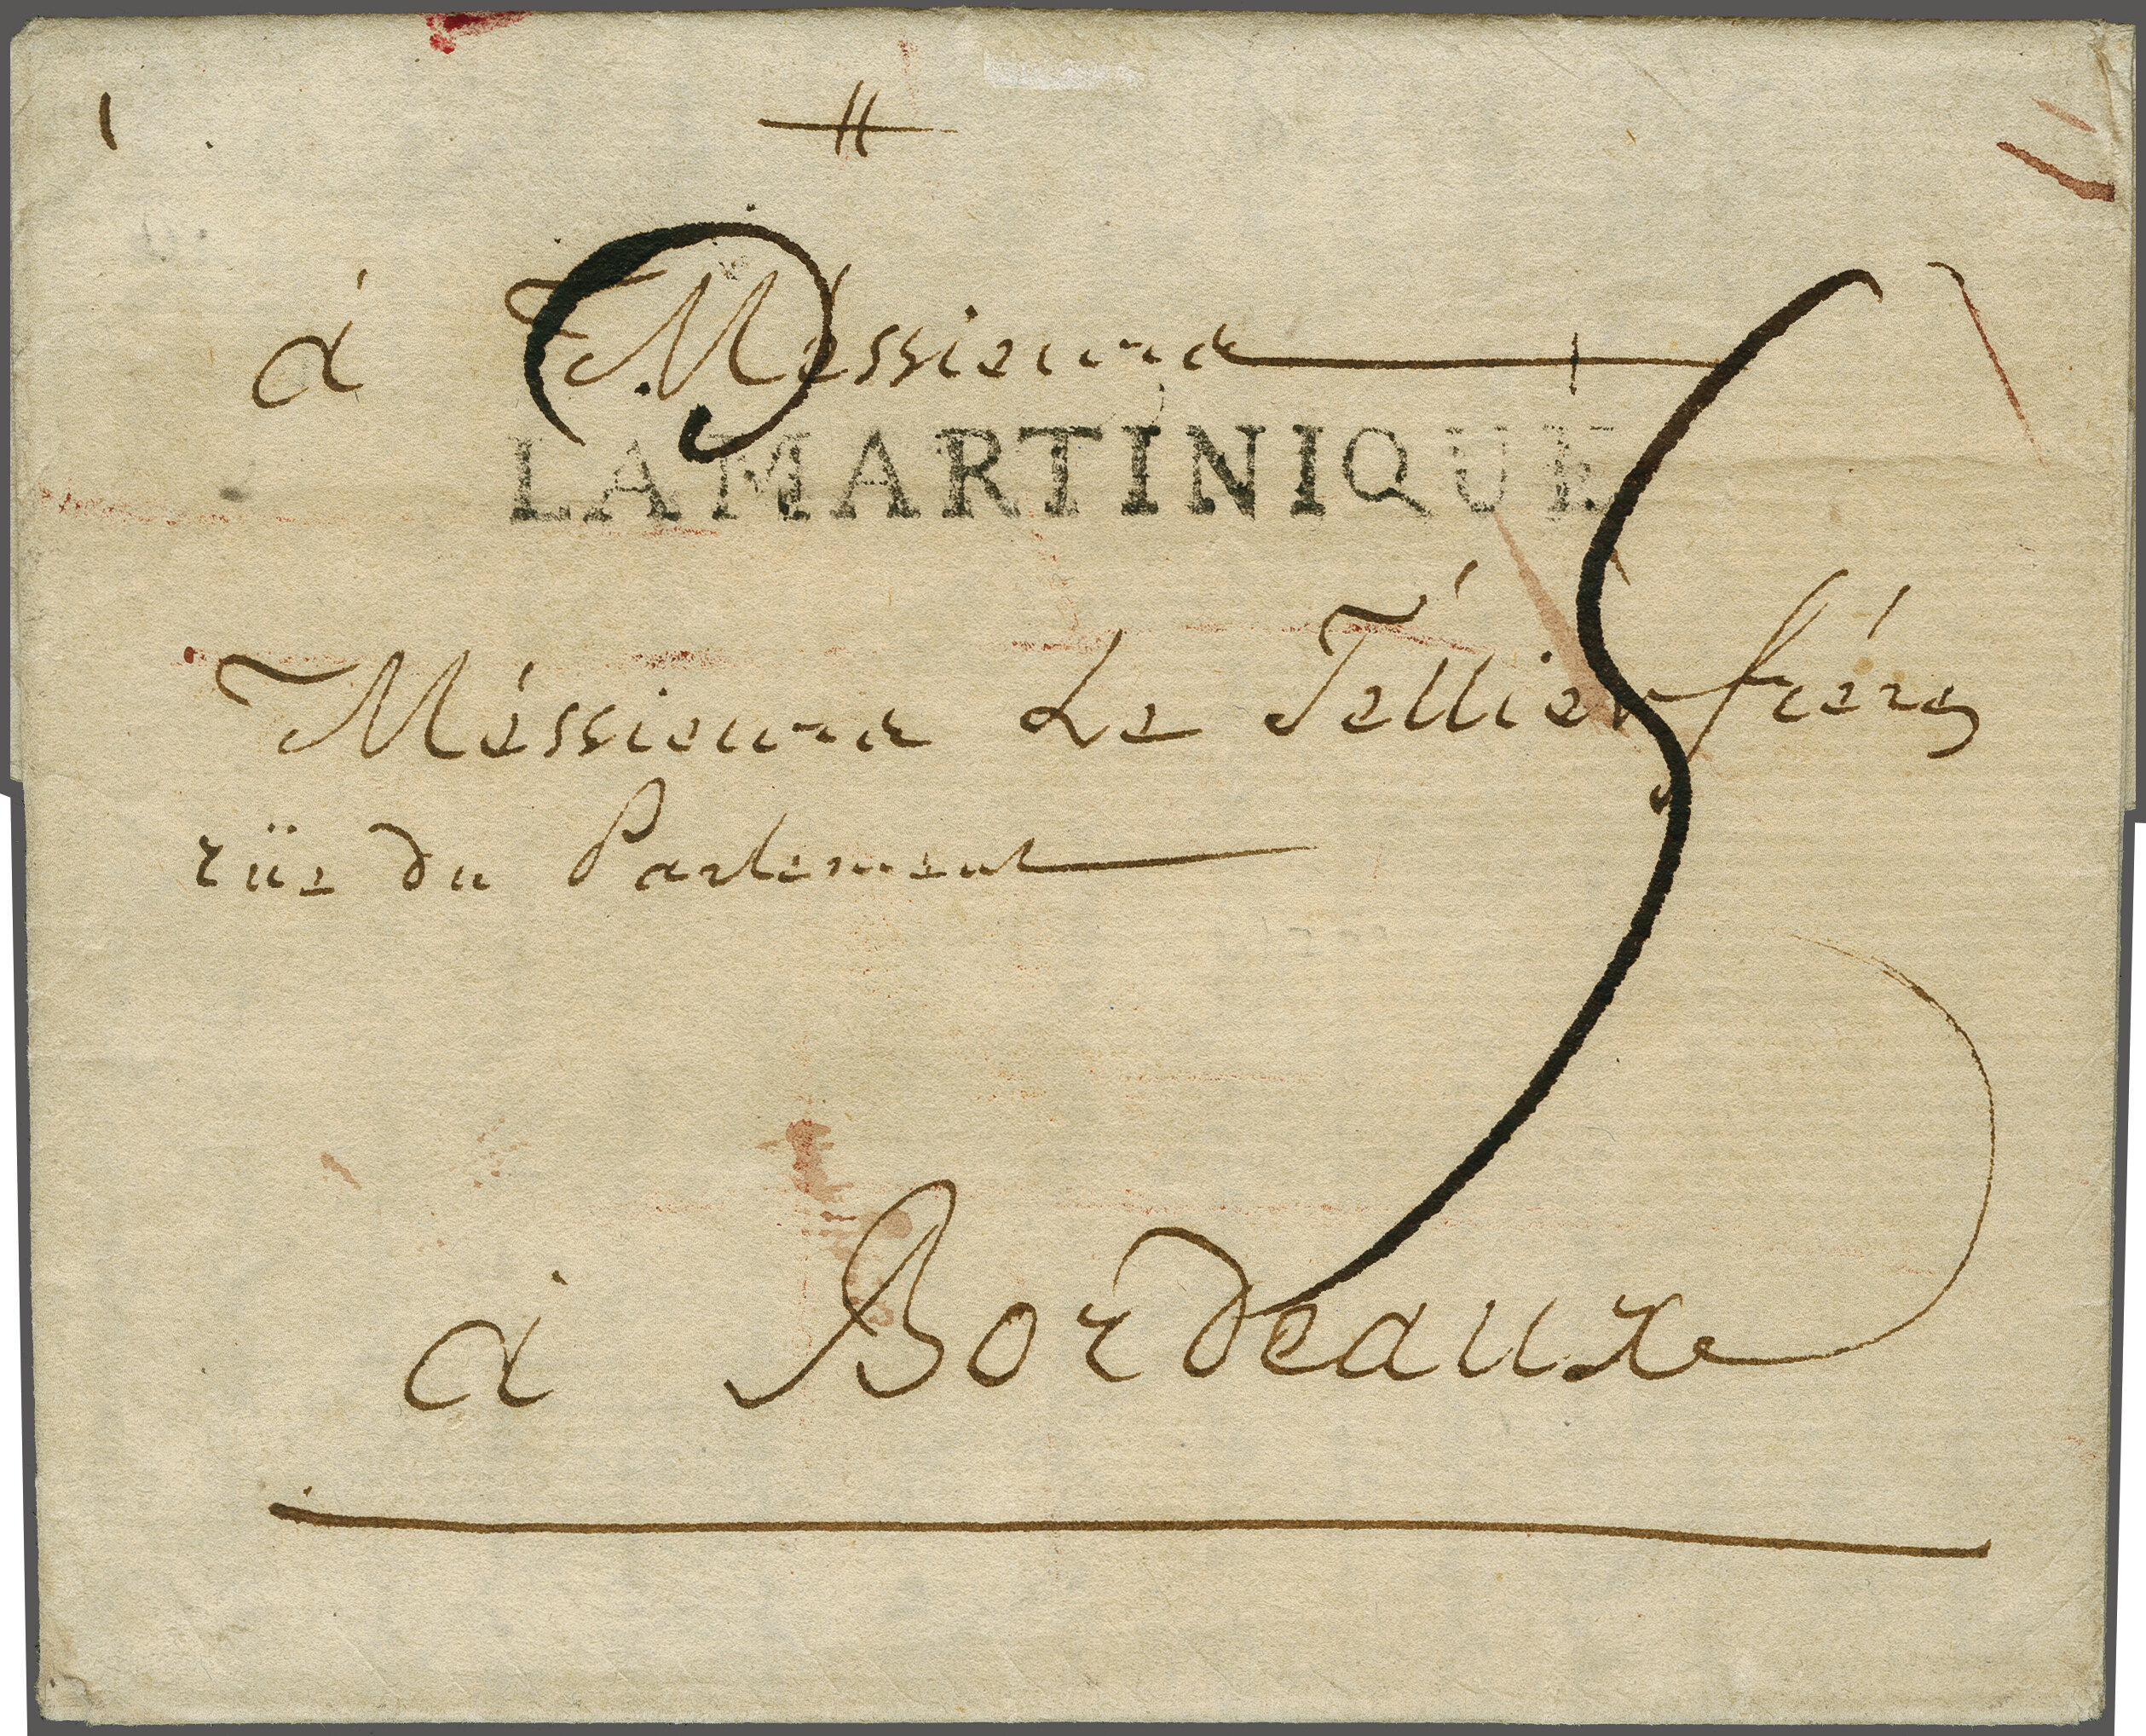 à Méssieurs
LA MARTINIQUE
Méssieurs Le Tellier frérs
rüe du Parlement
à Bordeaux